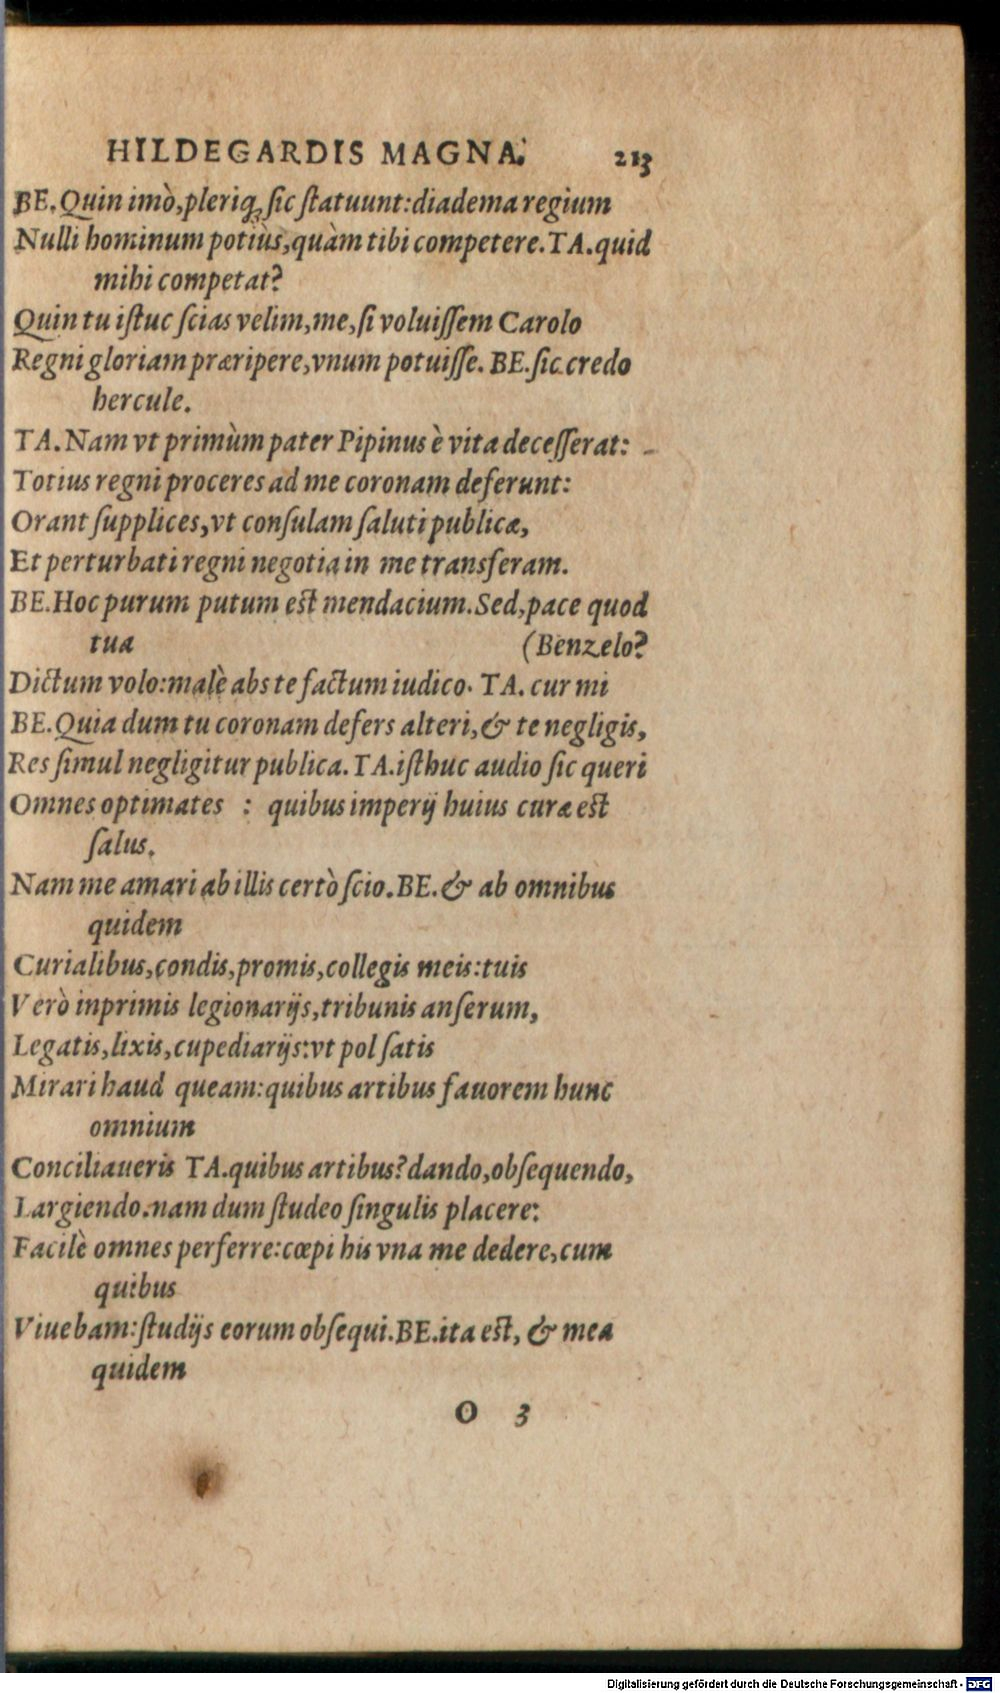 HILDEGARDIS MAGNA. 213
BE. Quin imò, pleriq; sic ſtatuunt: diadema regium
Nulli hominum potiùs, quàm tibi competere. TA. quid
mihi competat?
Quin tu iſtuc ſcias velim, me, ſi voluiſſem Carolo
Regni gloriam præripere, vnum potuiſſe. BE. ſic credo
hercule.
TA. Nam vt primùm pater Pipinus è vita deceſſerat:
Totius regni proceres ad me coronam deferunt:
Orant ſupplices, vt conſulam ſaluti publicæ,
Et perturbati regni negotia in me transferam.
BE. Hoc purum putum eſt mendacium. Sed, pace quod
tua (Benzelo?
Dictum volo: malè abs te factum iudico. TA. cur mi
BE. Quia dum tu coronam defers alteri, & te negligis,
Res ſimul negligitur publica. TA. iſthuc audio ſic queri
Omnes optimates : quibus imperij huius curæ eſt
ſalus.
Nam me amari ab illis certò ſcio. BE. & ab omnibus
quidem
Curialibus, condis, promis, collegis meis: tuis
Verò inprimis legionarijs, tribunis anſerum,
Legatis, lixis, cupediarijs: vt pol ſatis
Mirari haud queam: quibus artibus fauorem hunc
omnium
Conciliaueris TA. quibus artibus? dando, obſequendo,
Largiendo. nam dum ſtudeo ſingulis placere:
Facilè omnes perferre: cœpi his vna me dedere, cum
quibus
Viuebam: ſtudijs eorum obſequi. BE. ita eſt, & mea
quidem
O 3
Digitalisierung gefördert durch die Deutsche Forschungsgemeinschaft - DFG